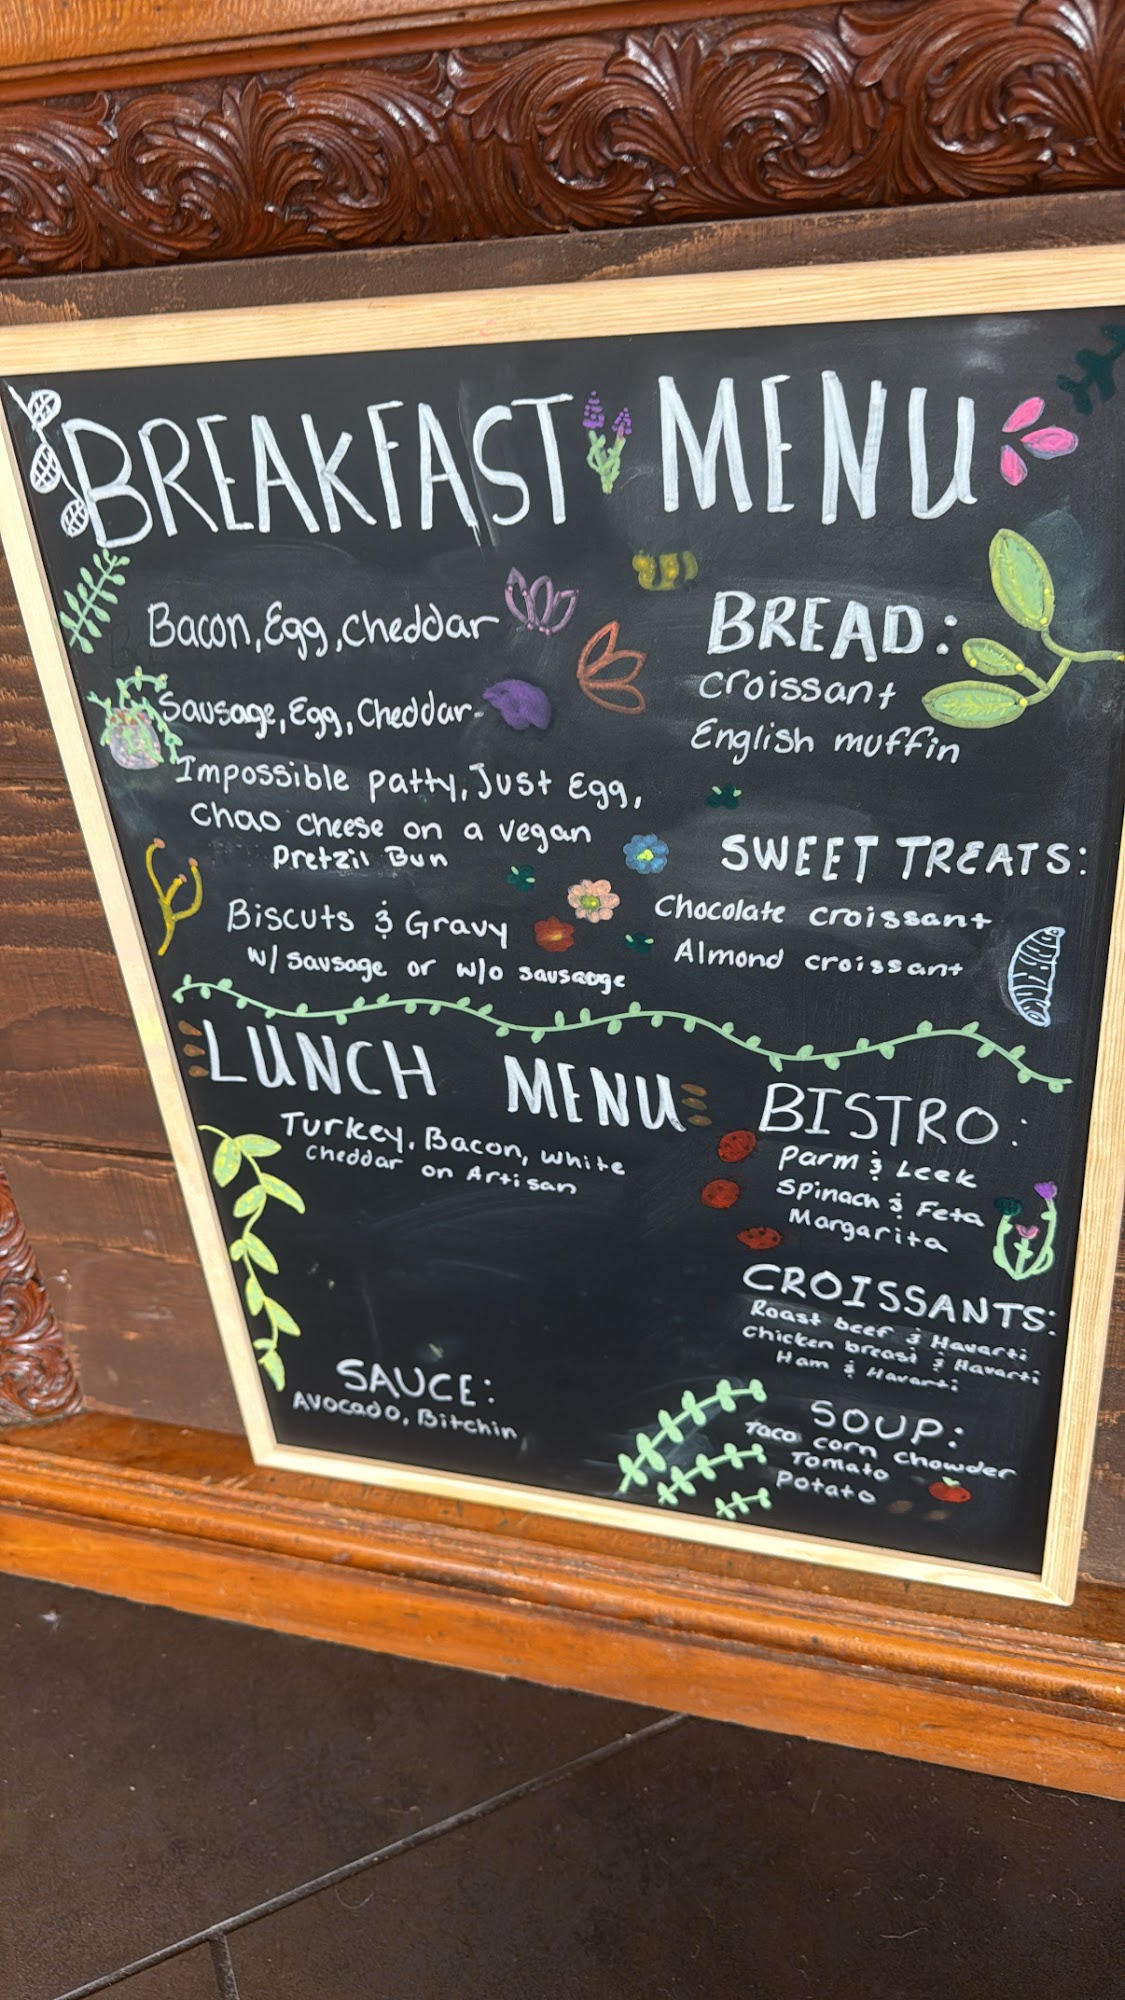 BREAKFAST MENU
Bacon, Egg, cheddar
Sausage, Egg, Cheddar
Impossible patty, Just Egg,
Chao cheese on a vegan
Pretzil Bun
Biscuts & Gravy
w/ sausage or w/o sausauge
BREAD:
croissant
English muffin
SWEET TREATS:
Chocolate croissant
Almond croissant
LUNCH MENU
Turkey, Bacon, white
cheddar on Artisan
SAUCE:
Avocado, Bitchin
BISTRO:
Parm & Leek
Spinach & Feta
Margarita
CROISSANTS:
Roast beef & Havarti
chicken breast & Havarti
Ham & Havarti
SOUP:
Taco corn chowder
Tomato
Potato